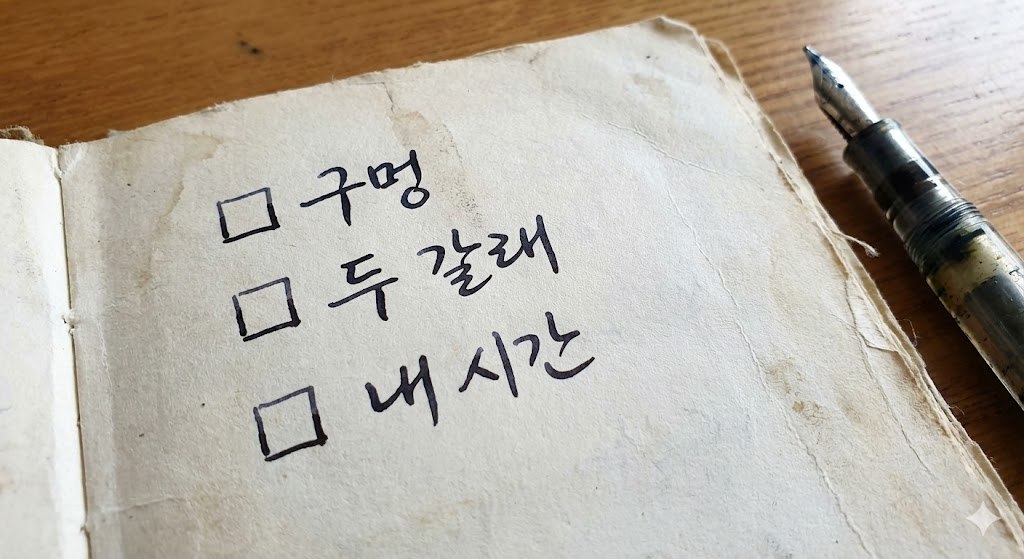 □ 구멍
□ 두 갈래
□ 내 시간